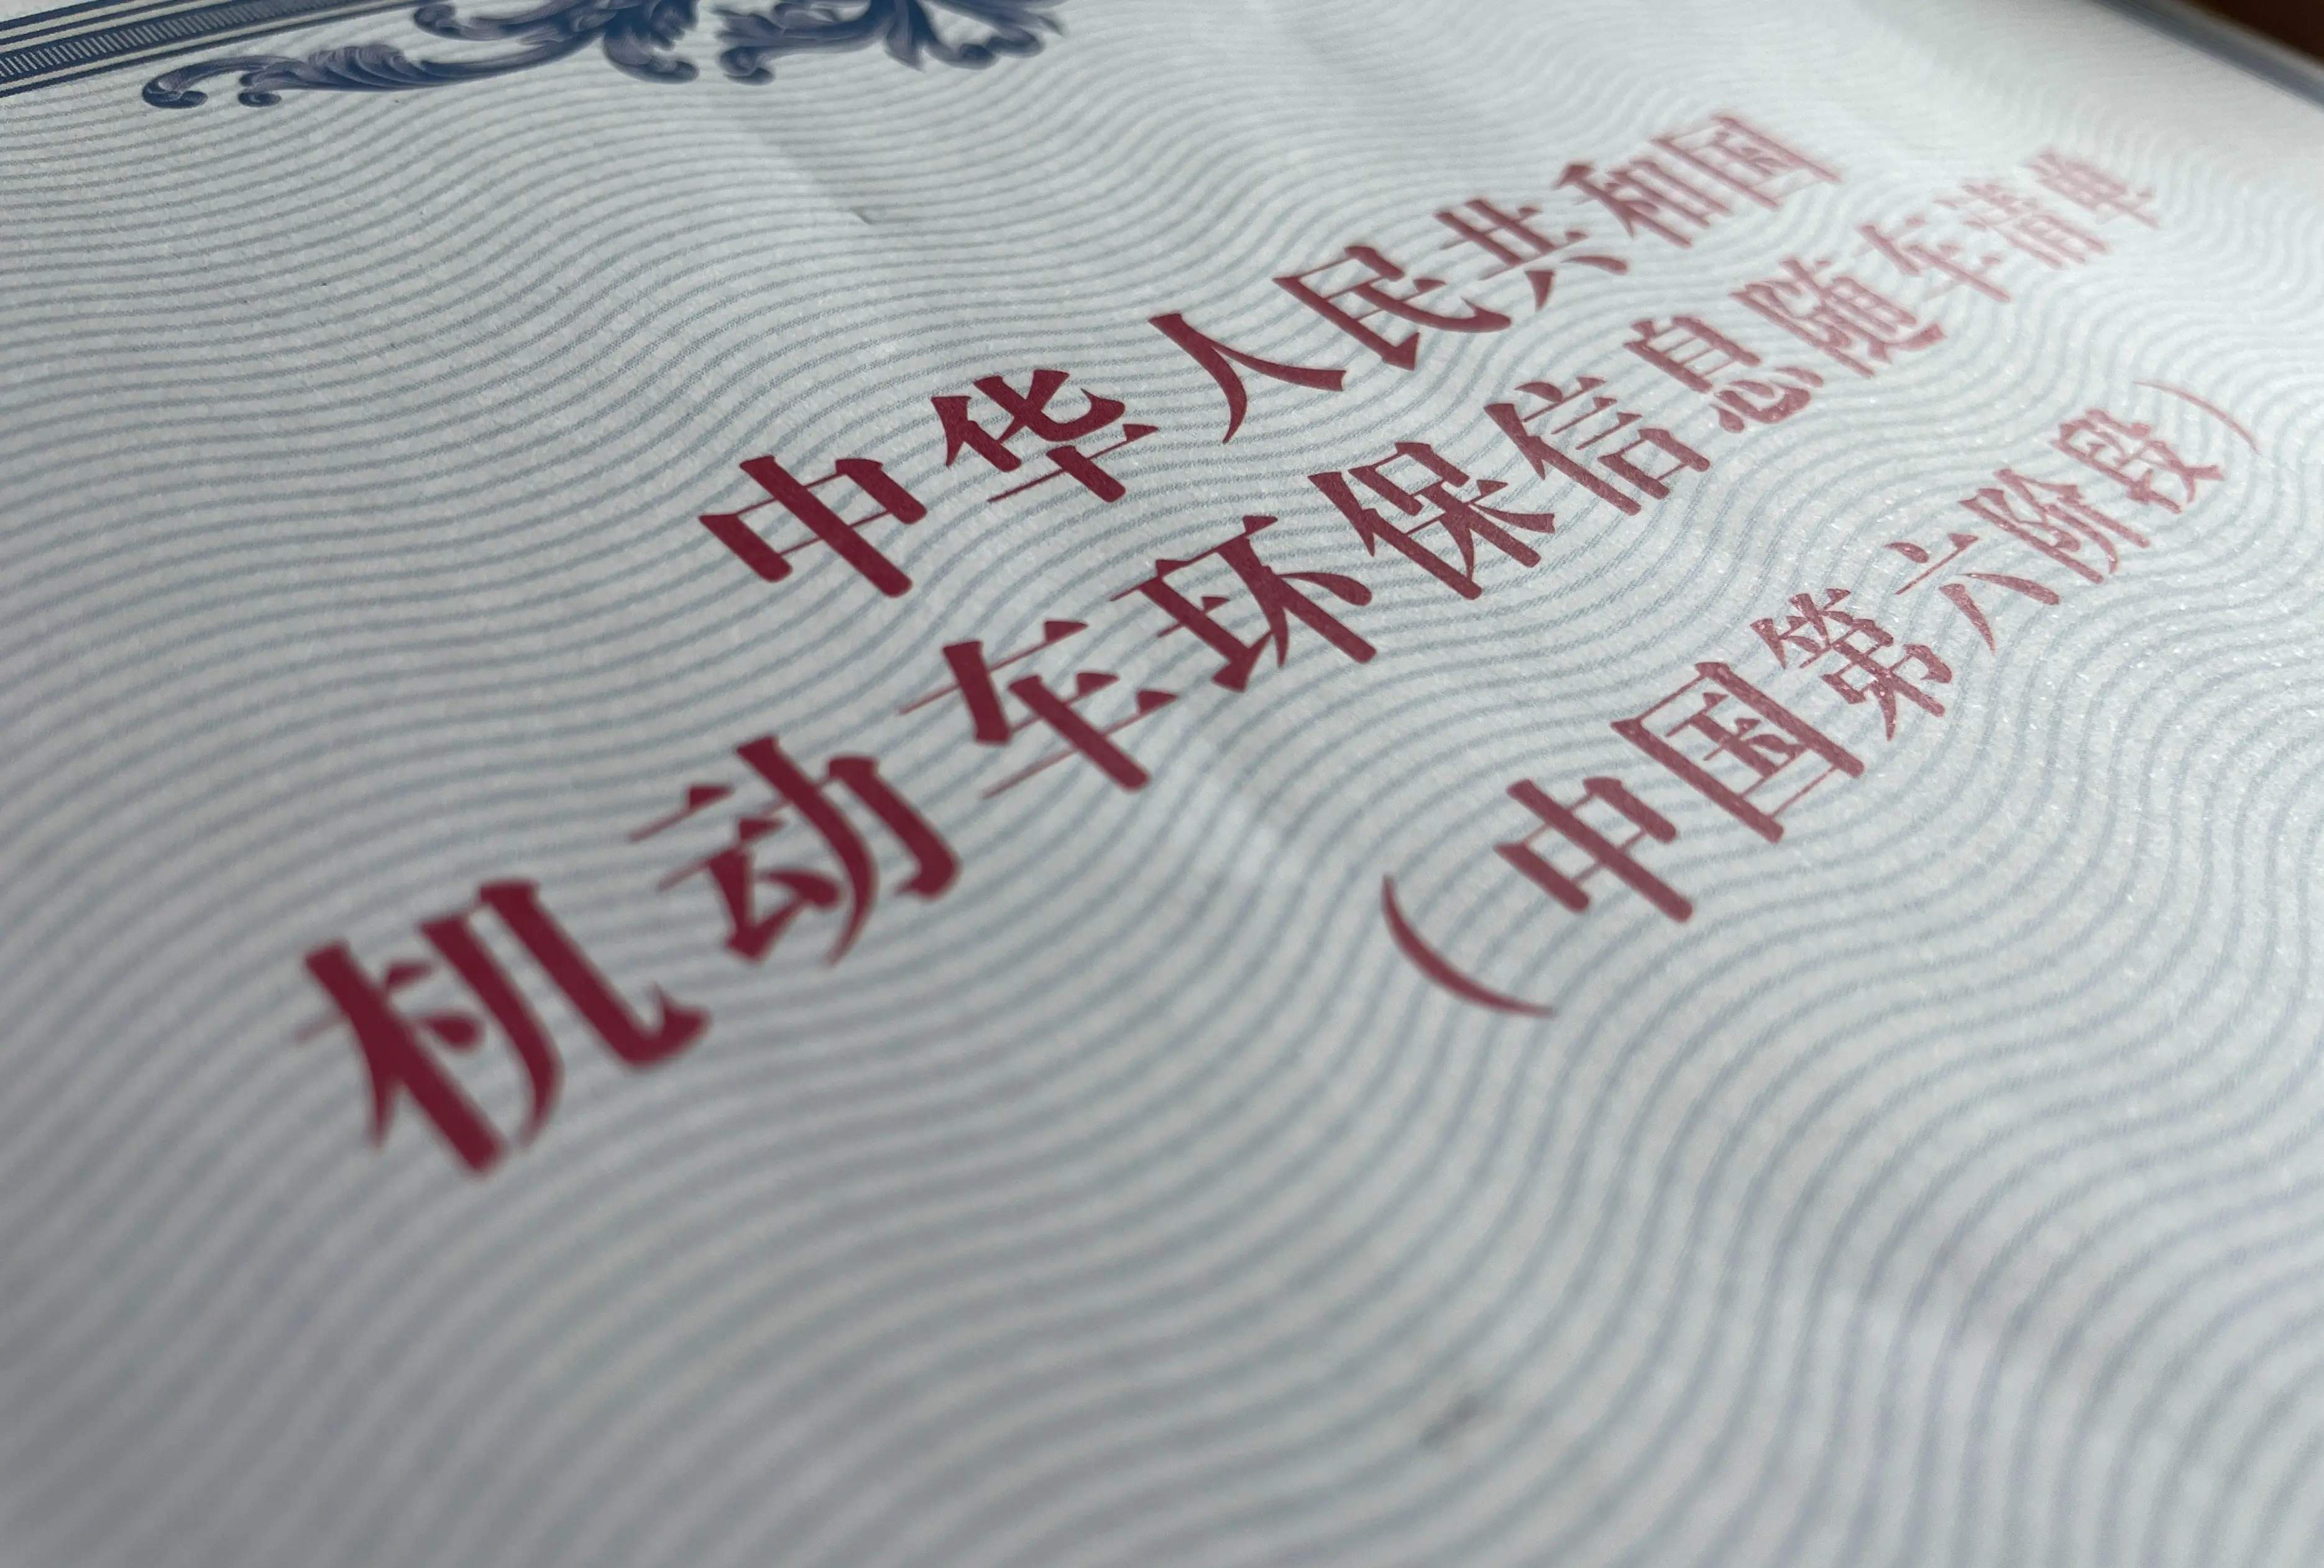 中华人民共和国
机动车环保信息随车清单
（中国第六阶段）